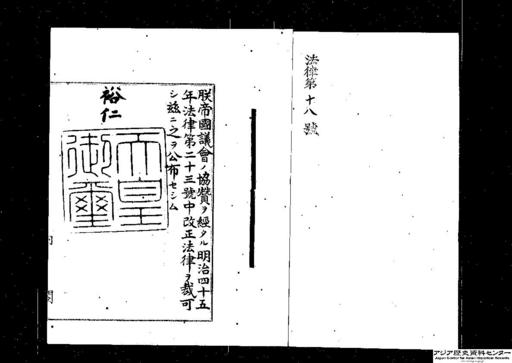 法律第十八號
朕帝國議會ノ協贊ヲ經タル明治四十五
年法律第二十三號中改正法律ヲ裁可
シ茲ニ之ヲ公布セシム
裕仁
天皇
御璽
内閣
アジア歴史資料センター
Japan Center for Asian Historical Records